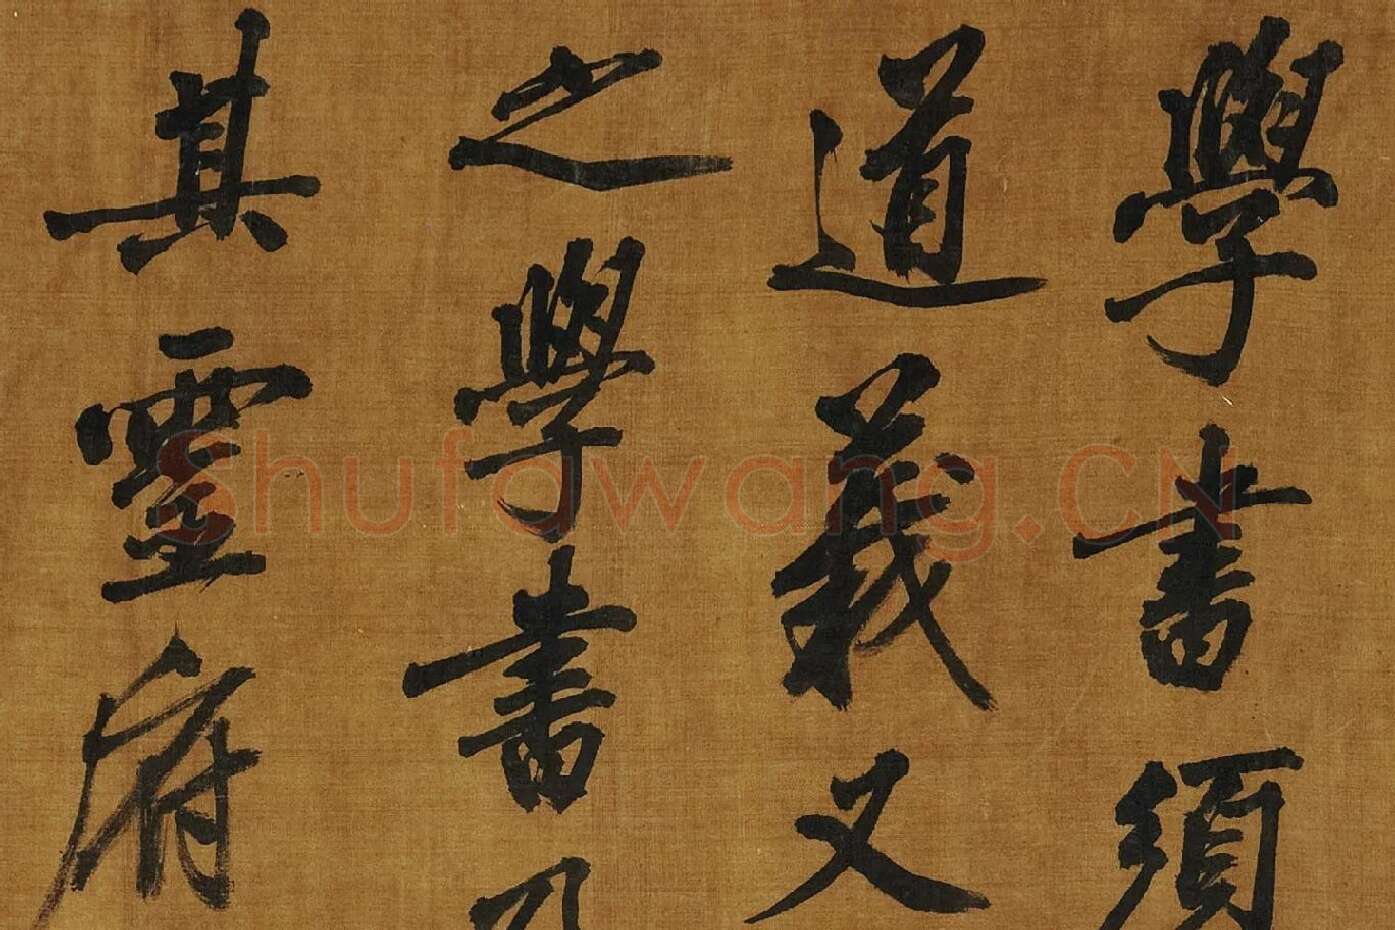 學書須
道義又
之學書
其靈府
Shufawang.CN